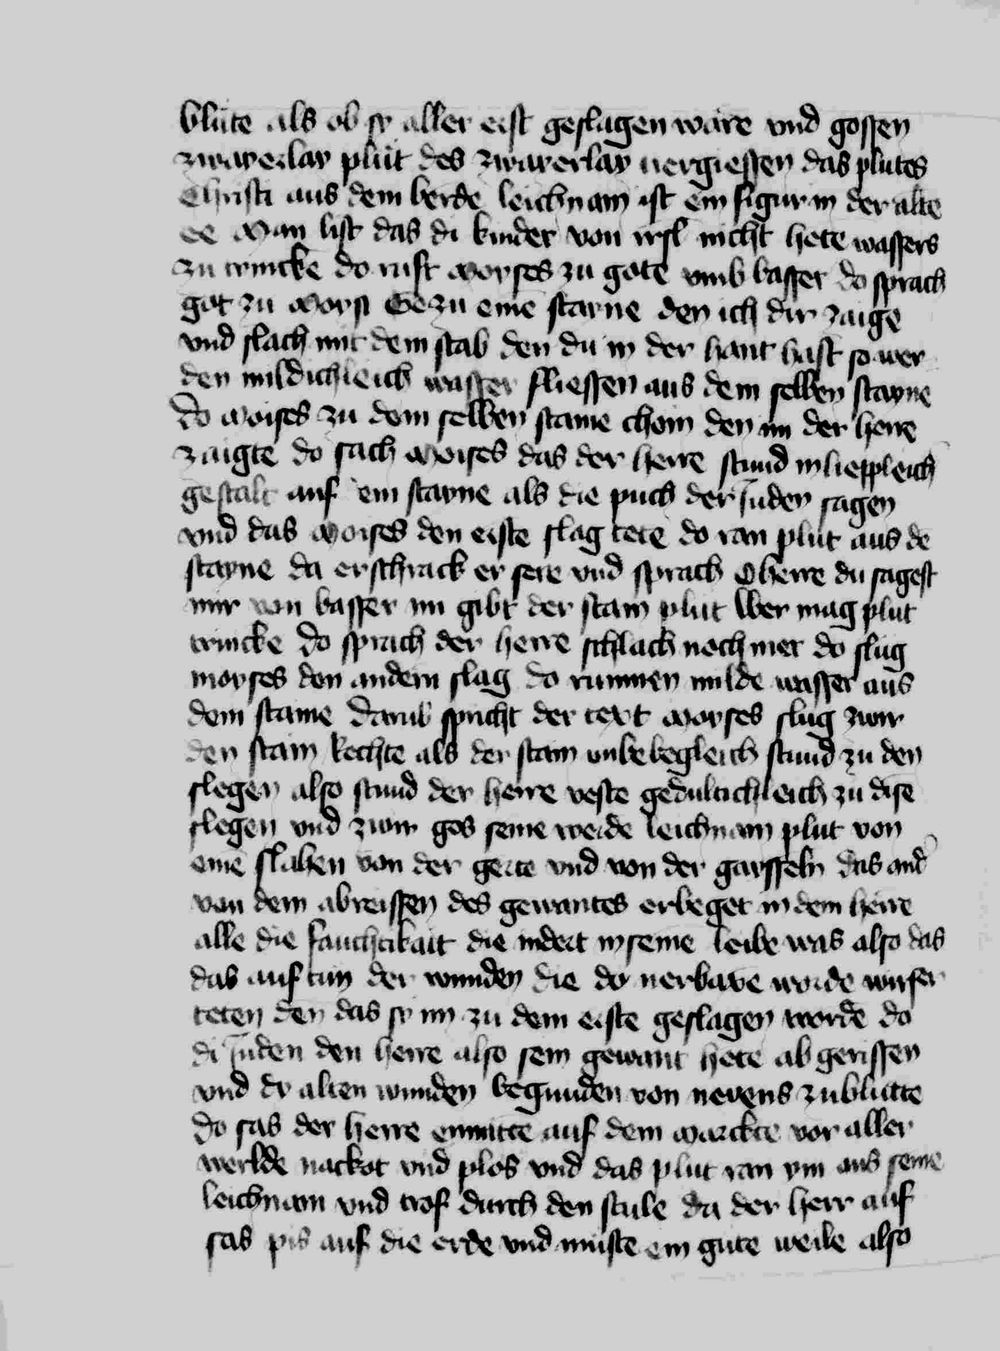 blute als ob sy aller erst geslagen ware vnd gossen
zwayerlay plut des zwayerlay uergiessen das plutes
Christi aus dem berde leichnam ist ein figur in der alte
ee Man list das di kinder von irsl nicht hete wassers
zu trincke do ruft Moyses zu gote vmb basser do sprach
got zu Moysi Ge zu eine stayne den ich dir zaige
vnd slach mit dem stab den du in der hant hast so wer
den mildichleich wasser fliessen aus dem selben stayne
do Moises zu dem selben staine chom den im der herre
zaigte do sach Moises das der herre stund in liepleich
gestalt auf ein stayne als die puch der Juden sagen
vnd das Moises den erste slag tete do ran plut aus de
stayne da erschrack er sere vnd sprach O herre du sagest
mir von basser nu gibt der stain plut Wer mag plut
trincke do sprach der herre schlach noch mer do slug
moyses den andern slag do runnen milde wasser aus
dem staine darub spricht der text Moyses slug zwir
den stain Rechte als der stain vnbebegleich stund zu den
slegen also stund der herre veste gedultichleich zu dise
slegen vnd zwir gos seine werde leichnam plut von
eine slahen von der gerte vnd von der gaysseln das and
von dem abreissen des gewantes erbeget in dem herre
alle die fauchtikait die indert in seine leibe was also das
das auf tun der wunden die do uerbabe worde wirser
teten den das sy im zu dem erste geslagen worde do
di Juden den herre also sein gewant hete ab gerissen
vnd dy alten wunden begunden von nevens zu blutte
do sas der herre enmitte auf dem Marckte vor aller
werlde nackot vnd plos vnd das plut ran ym aus seine
leichnam vnd trof durch den stule da der herr auf
sas pis auf die erde vnd muste ein gute weile also